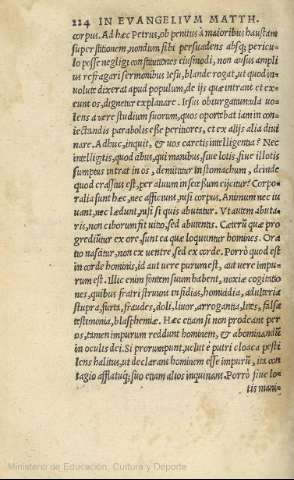 224 IN EVANGELIVM MATTH.
corpus. Ad hæc Petrus, ob penitus à maioribus haustam
superstitionem, nondum sibi persuadens absq; pericu-
lo posse negligi constitutiones eiusmodi, non ausus ampli
us refragari sermonibus Iesu, blande rogat, ut quod in-
uolute dixerat apud populum, de ijs quæ intrant et ex-
eunt os, dignetur explanare. Iesus obiurgatiuncula uo-
lens acuere studium suorum, quos oportebat iam in con-
iectandis parabolis esse peritiores, et ex alijs alia diui
nare. Adhuc, inquit, & uos caretis intelligentia? Nec
intelligitis, quod cibus, qui manibus, siue lotis, siue illotis
sumptus intrat in os, demittitur in stomachum, deinde
quod crassius est, per aluum in secessum eijcitur? Corpo-
ralia sunt hæc, nec afficiunt, nisi corpus. Animum nec iu
uant, nec lædunt, nisi si quis abutatur. Vt autem abuta-
ris, non ciborum fit uitio, sed abutentis. Cæterũ quæ pro
grediũtur ex ore, sunt ea quæ loquuntur homines. Ora
tio nascitur, non ex uentre, sed ex corde. Porrò quod est
in corde hominis, id aut uere purum est, aut uere impu-
rum est. Illic enim fontem suum habent, noxiæ cogitatio
nes, quibus fratri struunt insidias, homicidia, adulteria
stupra, furta, fraudes, doli, liuor, arrogantia, lites, falsa
testimonia, blasphemiæ. Hæc etiam si non prodeant per
os, tamen impurum reddunt hominem, & abominandũ
in oculis dei. Si prorumpunt, uelut è putri cloaca pesti
lens halitus, ut declarant hominem esse impurũ, ita con
tagio afflatuq; suo etiam alios inquinant. Porrò siue lo-
tis mani-
Ministerio de Educación, Cultura y Deporte